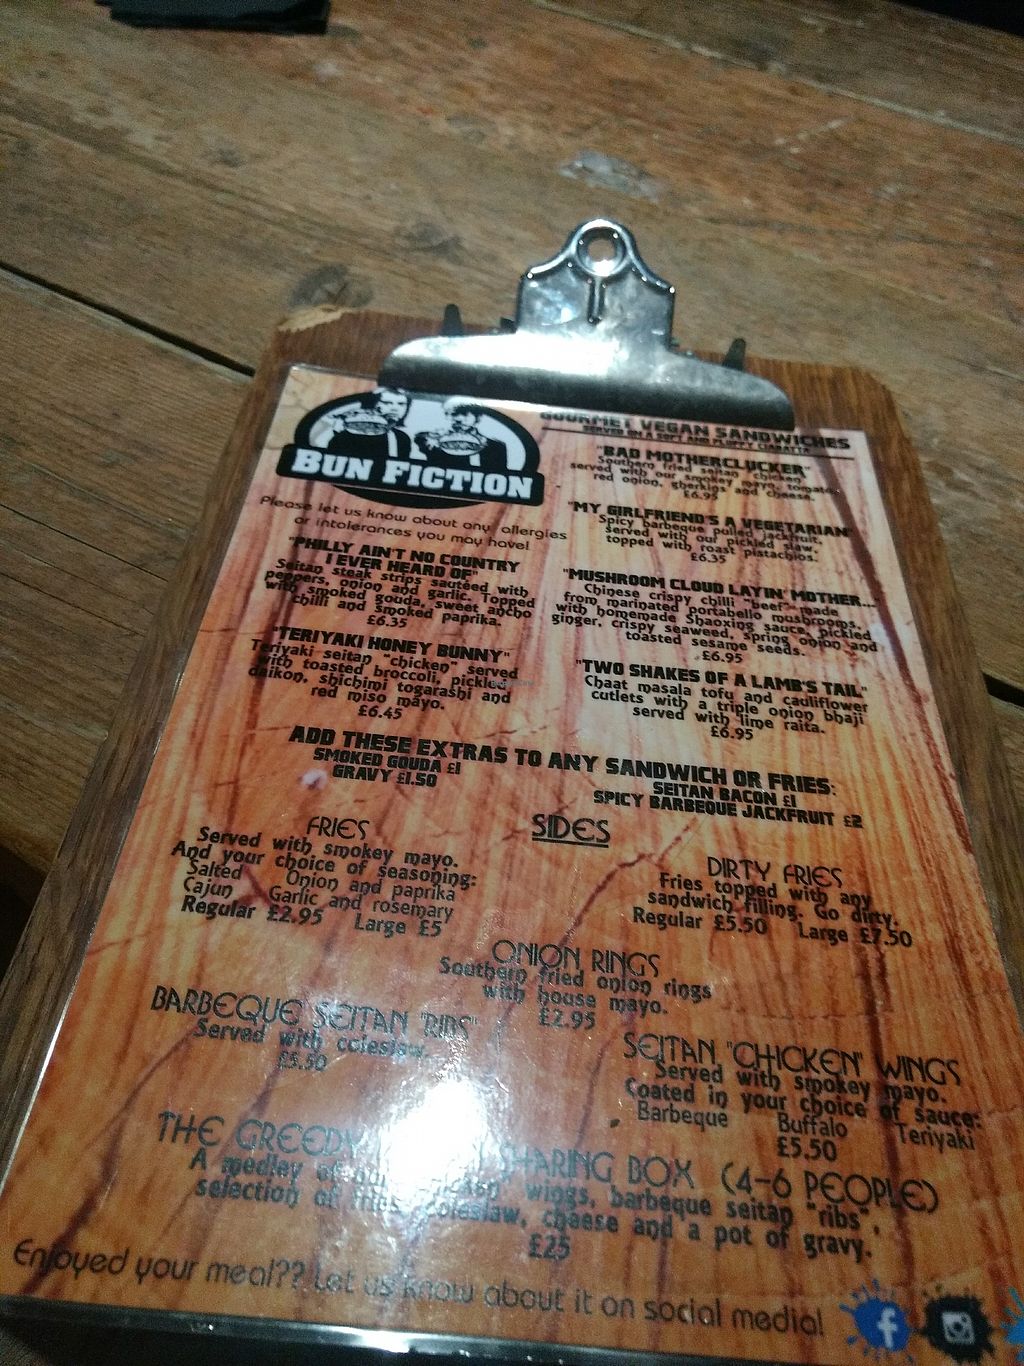 BUN FICTION
Please let us know about any allergies
or intolerances you may have!
"PHILLY AIN'T NO COUNTRY
I EVER HEARD OF"
Seitan steak strips sautéed with
peppers, onion and garlic. Topped
with smoked gouda, sweet ancho
chilli and smoked paprika.
£6.35
"TERIYAKI HONEY BUNNY"
Teriyaki seitan "chicken" served
with toasted broccoli, pickled
daikon, shichimi togarashi and
red miso mayo.
£6.45
GOURMET VEGAN SANDWICHES
SERVED ON A SOFT AND FLUFFY CIABATTA
"BAD MOTHERCLUCKER"
Southern fried seitan "chicken"
served with our smokey mayo, tomato,
red onion, gherkins and cheese.
£6.95
"MY GIRLFRIEND'S A VEGETARIAN"
Spicy barbeque pulled jackfruit,
served with our pickled slaw,
topped with roast pistachios.
£6.35
"MUSHROOM CLOUD LAYIN' MOTHER..."
Chinese crispy chilli "beef" made
from marinated portabello mushrooms,
with homemade Shaoxing sauce, pickled
ginger, crispy seaweed, spring onion and
toasted sesame seeds.
£6.95
"TWO SHAKES OF A LAMB'S TAIL"
Chaat masala tofu and cauliflower
cutlets with a triple onion bhaji
served with lime raita.
£6.95
ADD THESE EXTRAS TO ANY SANDWICH OR FRIES:
SMOKED GOUDA £1
GRAVY £1.50
SEITAN BACON £1
SPICY BARBEQUE JACKFRUIT £2
SIDES
FRIES
Served with smokey mayo.
And your choice of seasoning:
Salted Onion and paprika
Cajun Garlic and rosemary
Regular £2.95 Large £5
DIRTY FRIES
Fries topped with any
sandwich filling. Go dirty.
Regular £5.50 Large £7.50
ONION RINGS
Southern fried onion rings
with house mayo.
£2.95
BARBEQUE SEITAN "RIBS"
Served with coleslaw.
£5.50
SEITAN "CHICKEN" WINGS
Served with smokey mayo.
Coated in your choice of sauce:
Barbeque Buffalo Teriyaki
£5.50
THE GREEDY SHARING BOX (4-6 PEOPLE)
A medley of our "chicken" wings, barbeque seitan "ribs",
selection of fries, coleslaw, cheese and a pot of gravy.
£25
Enjoyed your meal?? Let us know about it on social media!